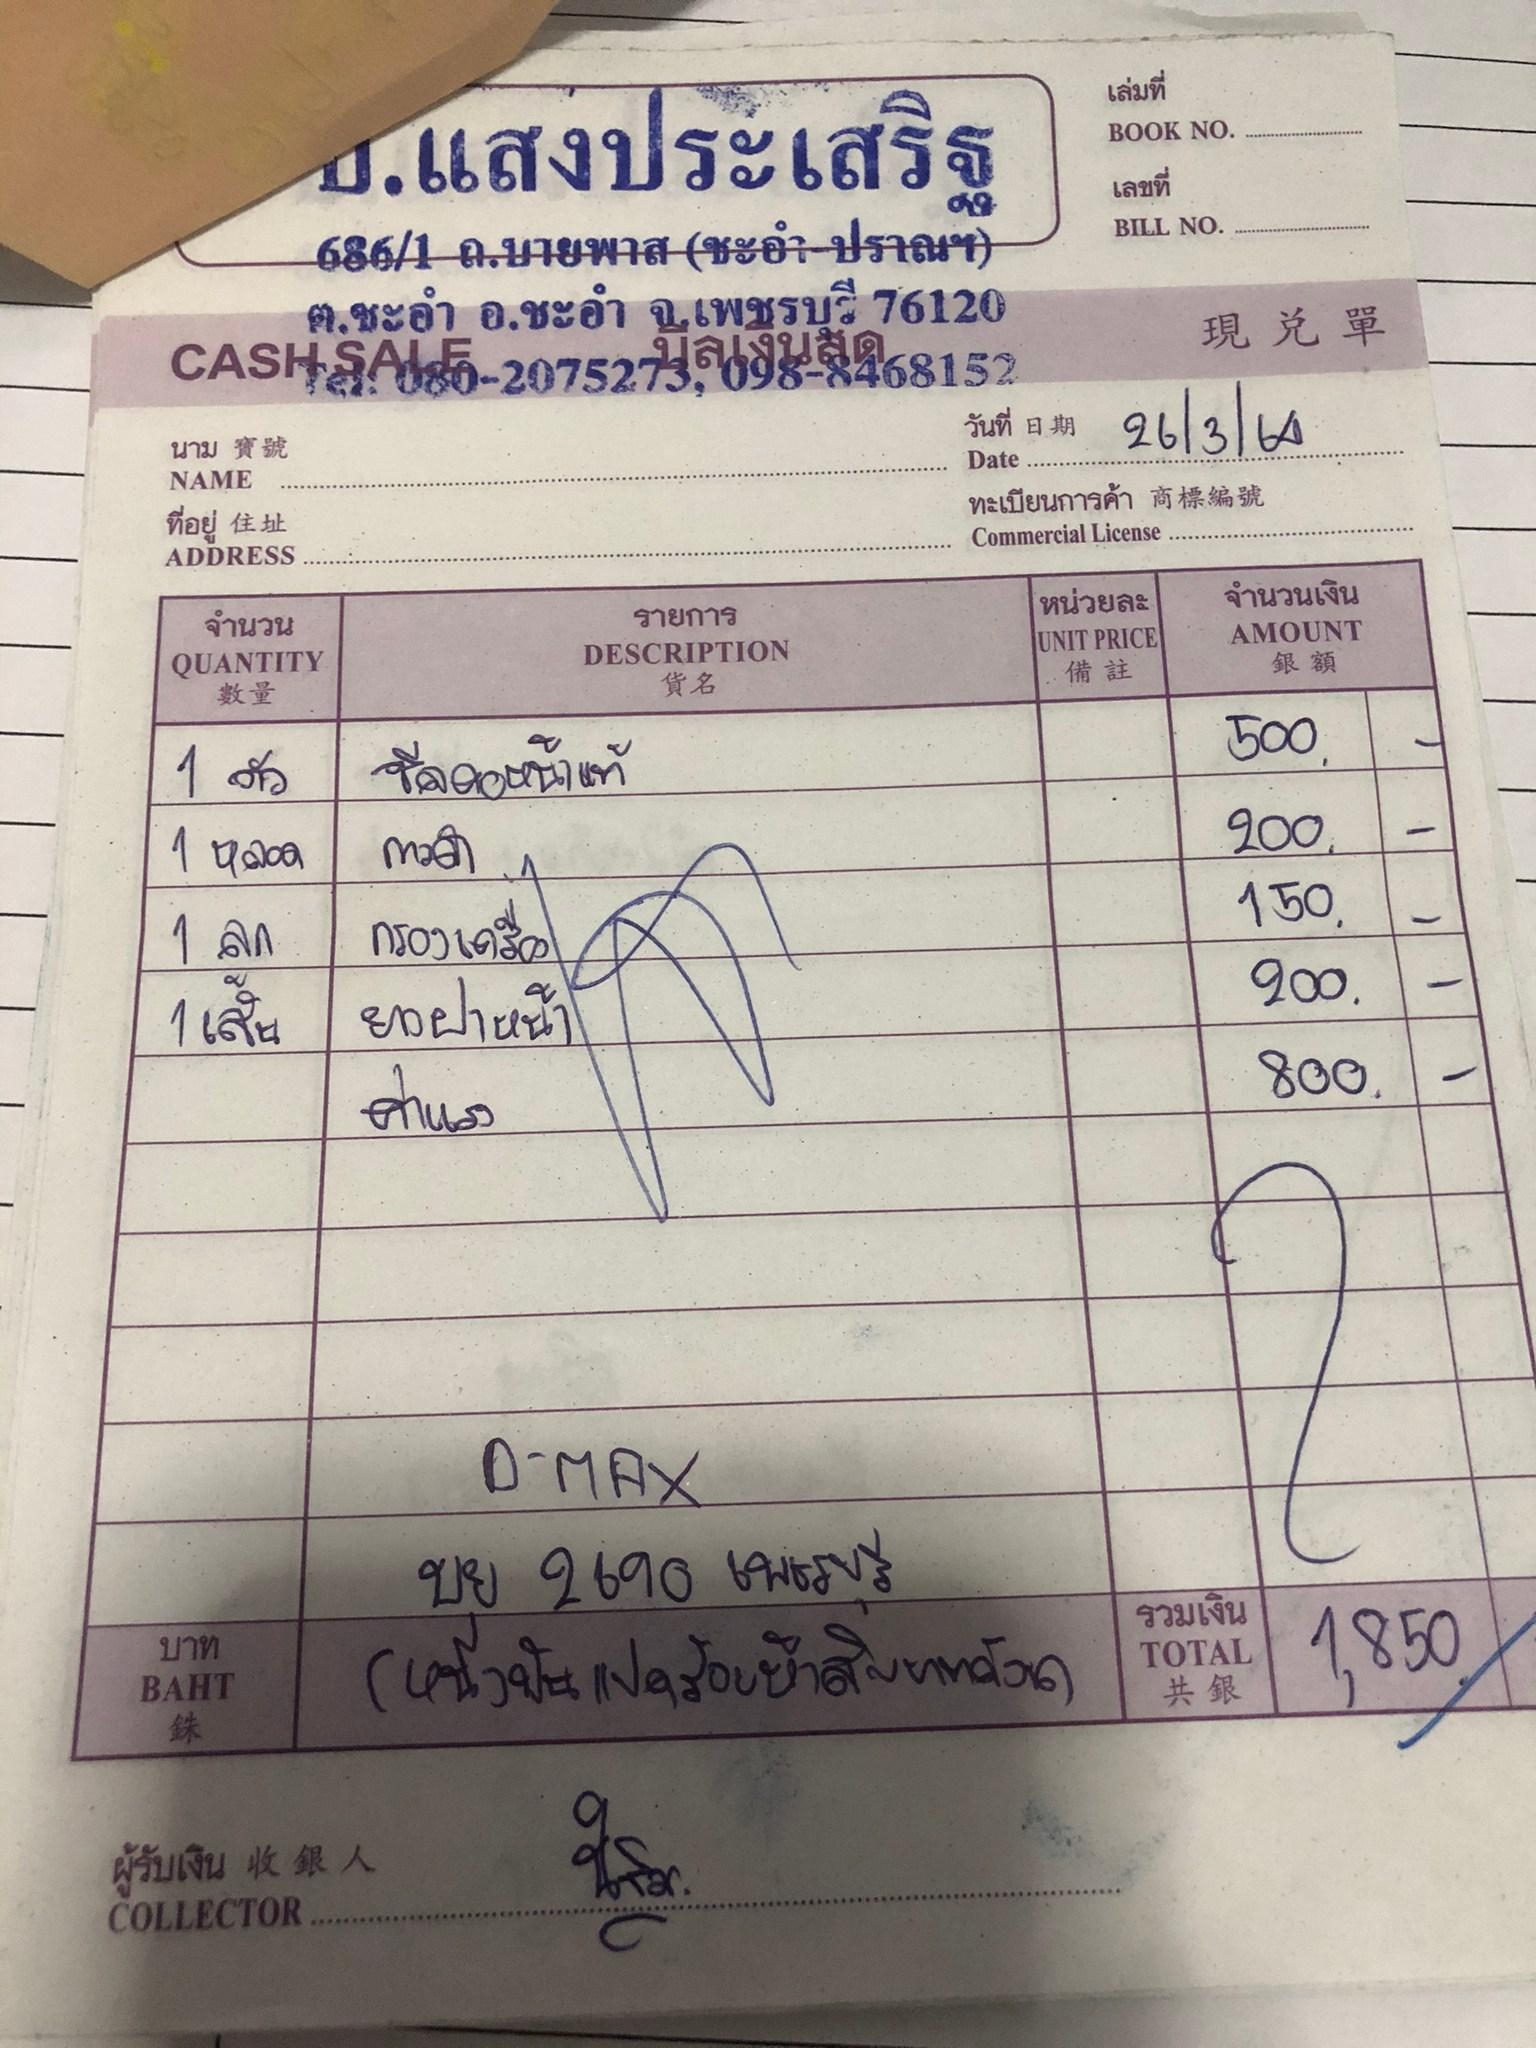 .แสงประเสริฐ
686/1 ถ.บายพาส (ชะอำ-ปราณฯ)
ต.ชะอำ อ.ชะอำ จ.เพชรบุรี 76120
Tel. 080-2075273, 098-8468152
เล่มที่
BOOK NO.
เลขที่
BILL NO.
CASH SALE บิลเงินสด 現兑單
นาม 寶號
NAME
วันที่ 日期
Date 26/3/64
ที่อยู่ 住址
ADDRESS
ทะเบียนการค้า 商標編號
Commercial License
จำนวน
QUANTITY
數量
รายการ
DESCRIPTION
貨名
หน่วยละ
UNIT PRICE
備註
จำนวนเงิน
AMOUNT
銀額
1 ตัว ซีลคอหน้าแท้ 500. -
1 หลอด กาวดำ 200. -
1 ลูก กรองเครื่อง 150. -
1 เส้น ยางฝาหน้า 200. -
ค่าแรง 800. -
D-MAX
บย 2690 เพชรบุรี
บาท
BAHT
銖
(หนึ่งพันแปดร้อยห้าสิบบาทถ้วน)
รวมเงิน
TOTAL
共銀
1,850.
ผู้รับเงิน 收銀人
COLLECTOR